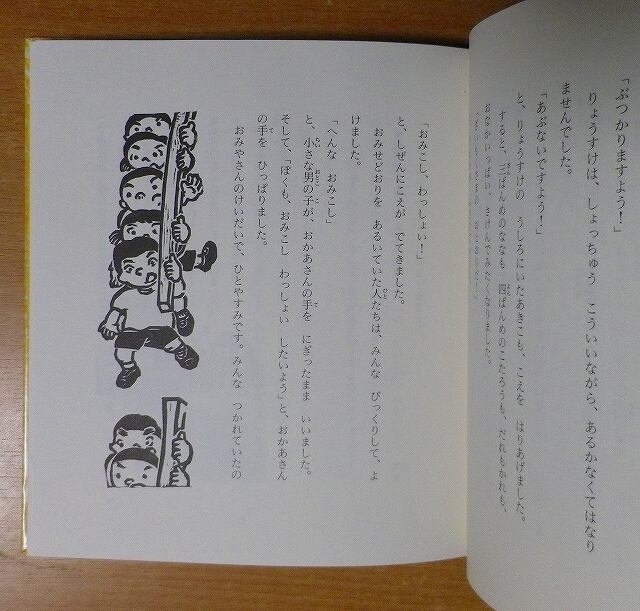 「ぶつかりますよう!」
りょうすけは、しょっちゅう こういいながら、あるかなくてはなり
ませんでした。
「あぶないですよう!」
と、りょうすけの うしろにいたあきこも、こえを はりあげました。
すると、三ばんめのななも 四ばんめのこたろうも、だれもかれも、
おなかいっぱい、さけんでみたくなりました。
「おみこし、わっしょい!」
と、しぜんにこえが でてきました。
おみせどおりを あるいていた人たちは、みんな びっくりして、よ
けました。
「へんな おみこし」
と、小さな男の子が、おかあさんの手を にぎったまま いいました。
そして、「ぼくも、おみこし わっしょい したいよう」と、おかあさん
の手を ひっぱりました。
おみやさんのけいだいで、ひとやすみです。みんな つかれていたの